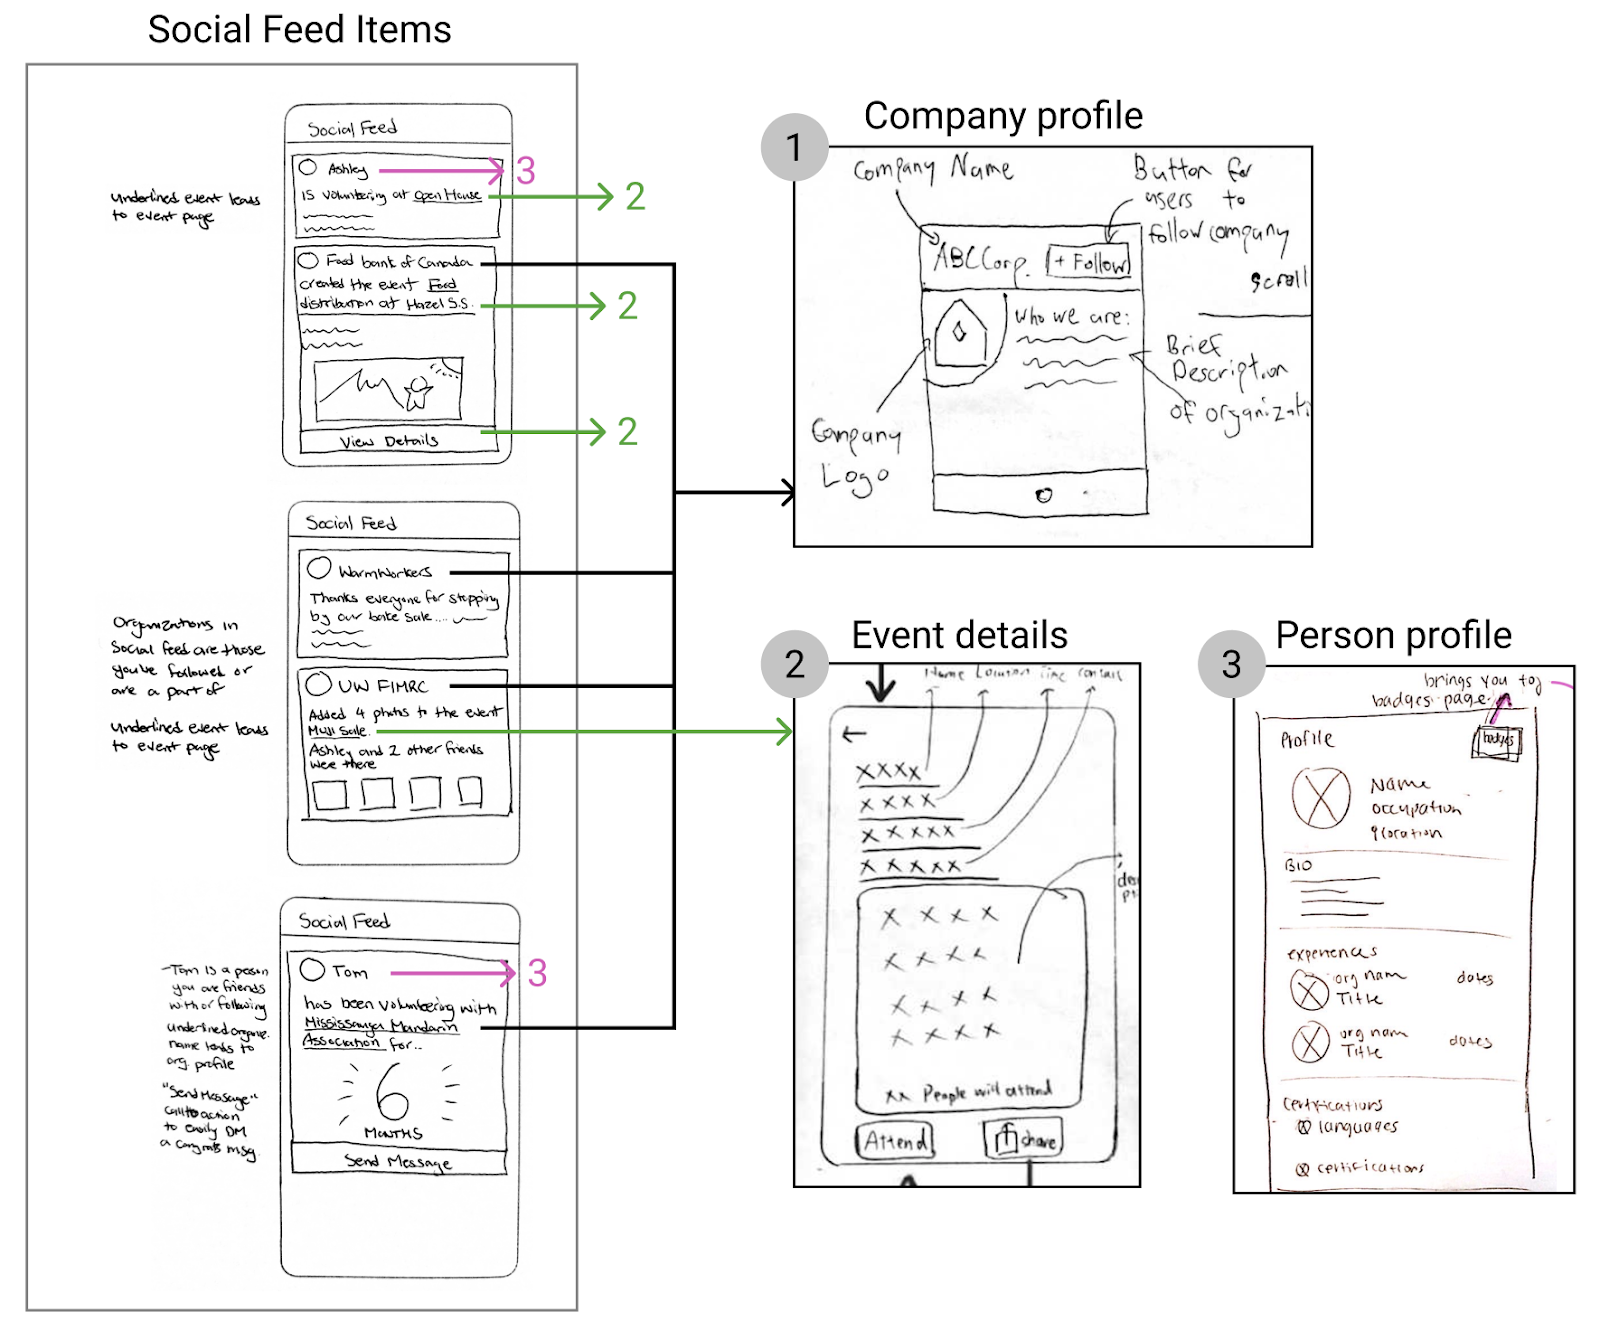 Social Feed Items
Underlined event leads
to event page
Social Feed
Ashley
3
is volunteering at Open House
2
Food bank of Canada
created the event Food
distribution at Hazel S.S.
2
View Details
2
Organizations in
Social feed are those
you've followed or
are a part of
Underlined event leads
to event page
Social Feed
WarmWorkers
Thanks everyone for stopping
by our bake sale....
UW FIMRC
Added 4 photos to the event
Muji Sale.
Ashley and 2 other friends
were there
-Tom is a person
you are friends
with or following
underlined organiz.
name leads to
org. profile
"Send Message"
call to action
to easily DM
a congrats msg.
Social Feed
Tom
3
has been volunteering with
Mississauga Mandarin
Association for..
6
MONTHS
Send Message
1
Company profile
Company Name
Button for
users to
follow company
ABC Corp.
+ Follow
Scroll
Who we are:
Brief
Description
of organizati
Company
Logo
2
Event details
Name Location Time Contact
XXXX
XXXX
XXXXX
XXXXX
des
X X X X
X X X X
X X X X
X X X X
xx People will attend
Attend
share
3
Person profile
brings you to
badges page
Profile
badges
Name
occupation
location
BIO
experiences
org nam
Title
dates
org nam
Title
dates
Certifications
languages
certifications